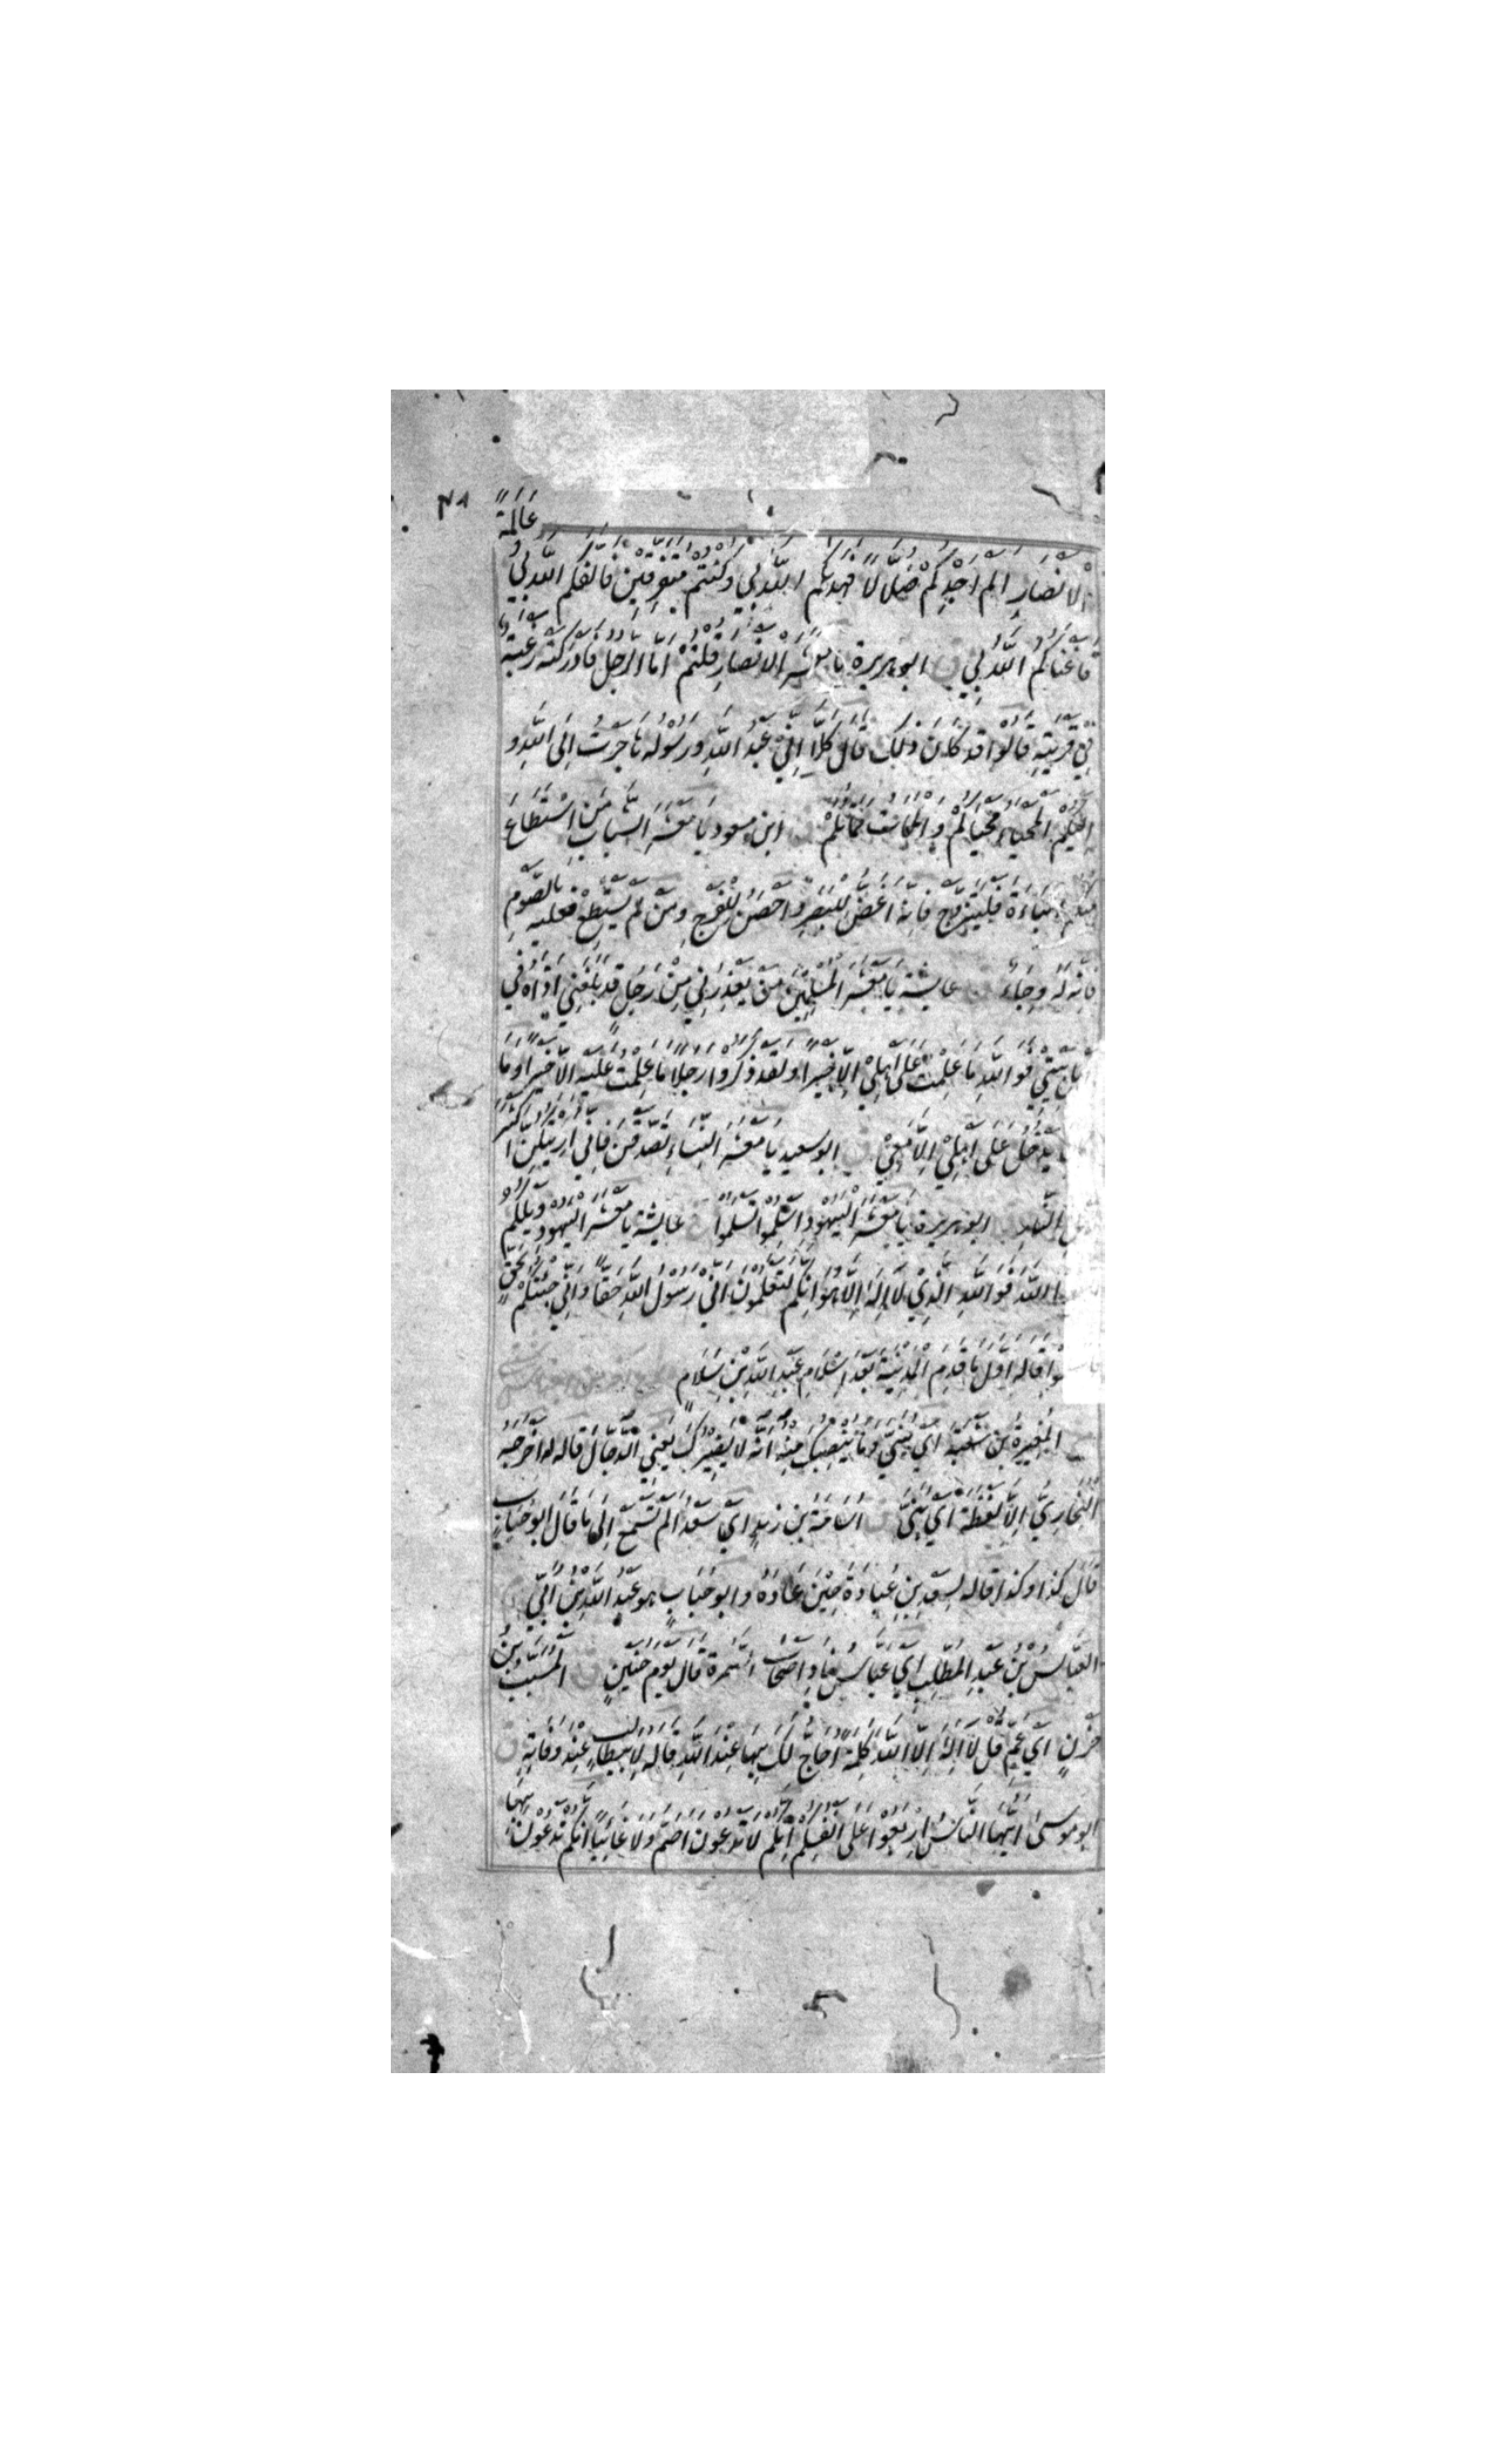 ٤٨
عَالَةً
الْاَنْصَارِ اَلَمْ اَجِدْكُمْ ضُلَّالًا فَهَدٰىكُمُ اللّٰهُ بِيْ وَكُنْتُمْ مُتَفَرِّقِيْنَ فَاَلَّفَكُمُ اللّٰهُ بِيْ
فَاَغْنَاكُمُ اللّٰهُ بِيْ ق ابو هريرة يَا مَعْشَرَ الْاَنْصَارِ قُلْتُمْ اَمَّا الرَّجُلُ فَاَدْرَكَتْهُ رَغْبَةٌ
فِيْ قَرْيَتِهٖ قَالُوْا قَدْ كَانَ ذٰلِكَ قَالَ كَلَّا اِنِّيْ عَبْدُ اللّٰهِ وَرَسُوْلُهُ هَاجَرْتُ اِلَى اللّٰهِ وَ
اِلَيْكُمْ الْمَحْيَا مَحْيَاكُمْ وَالْمَمَاتُ مَمَاتُكُمْ ابن مسعود يَا مَعْشَرَ الشَّبَابِ مَنِ اسْتَطَاعَ
مِنْكُمُ الْبَاءَةَ فَلْيَتَزَوَّجْ فَاِنَّهُ اَغَضُّ لِلْبَصَرِ وَاَحْصَنُ لِلْفَرْجِ وَمَنْ لَمْ يَسْتَطِعْ فَعَلَيْهِ بِالصَّوْمِ
فَاِنَّهُ لَهُ وِجَاءٌ عايشة يَا مَعْشَرَ الْمُسْلِمِيْنَ مَنْ يَعْذِرُنِيْ مِنْ رَجُلٍ قَدْ بَلَغَنِيْ اَذَاهُ فِيْ
اَهْلِ بَيْتِيْ فَوَاللّٰهِ مَا عَلِمْتُ عَلٰى اَهْلِيْ اِلَّا خَيْرًا وَلَقَدْ ذَكَرُوْا رَجُلًا مَا عَلِمْتُ عَلَيْهِ اِلَّا خَيْرًا وَمَا
يَدْخُلُ عَلٰى اَهْلِيْ اِلَّا مَعِيْ ق ابو سعيد يَا مَعْشَرَ النِّسَاءِ تَصَدَّقْنَ فَاِنِّيْ اُرِيْتُكُنَّ اَكْثَرَ
اَهْلِ النَّارِ ابو هريرة يَا مَعْشَرَ الْيَهُوْدِ اَسْلِمُوْا تَسْلَمُوْا عايشة يَا مَعْشَرَ الْيَهُوْدِ وَيْلَكُمْ
اللّٰهَ فَوَاللّٰهِ الَّذِيْ لَا اِلٰهَ اِلَّا هُوَ اِنَّكُمْ لَتَعْلَمُوْنَ اَنِّيْ رَسُوْلُ اللّٰهِ حَقًّا وَاَنِّيْ جِئْتُكُمْ بِحَقٍّ
قَالَهُ اَوَّلَ مَا قَدِمَ الْمَدِيْنَةَ بَعْدَ اِسْلَامِ عَبْدِ اللّٰهِ بْنِ سَلَامٍ
الْمُغِيْرَةُ بْنُ شُعْبَةَ اَيْ بُنَيَّ وَمَا يُنْصِبُكَ مِنْهُ اَنَّهُ لَا يَضُرُّكَ يَعْنِي الدَّجَّالَ قَالَهُ لَهُ اَخْرَجَهُ
الْبُخَارِيُّ اِلَّا لَفْظَةَ اَيْ بُنَيَّ ق اُسَامَةُ بْنُ زَيْدٍ اَيْ سَعْدُ اَلَمْ تَسْمَعْ اِلٰى مَا قَالَ اَبُوْ حُبَابٍ
قَالَ كَذَا وَكَذَا قَالَهُ لِسَعْدِ بْنِ عُبَادَةَ حِيْنَ عَادَهُ وَابو حُبَابٍ هُوَ عَبْدُ اللّٰهِ بْنُ اُبَيٍّ
العَبَّاسُ بْنُ عَبْدِ الْمُطَّلِبِ اَيْ عَبَّاسُ نَادِ اَصْحَابَ السَّمُرَةِ قَالَ يَوْمَ حُنَيْنٍ ق الْمُسَيَّبُ بْنُ
حَزْنٍ اَيْ عَمِّ قُلْ لَا اِلٰهَ اِلَّا اللّٰهُ كَلِمَةً اُحَاجُّ لَكَ بِهَا عِنْدَ اللّٰهِ قَالَهُ لِاَبِيْ طَالِبٍ عِنْدَ وَفَاتِهٖ ق
ابو موسى اَيُّهَا النَّاسُ ارْبَعُوْا عَلٰى اَنْفُسِكُمْ اِنَّكُمْ لَا تَدْعُوْنَ اَصَمَّ وَلَا غَائِبًا اِنَّكُمْ تَدْعُوْنَ